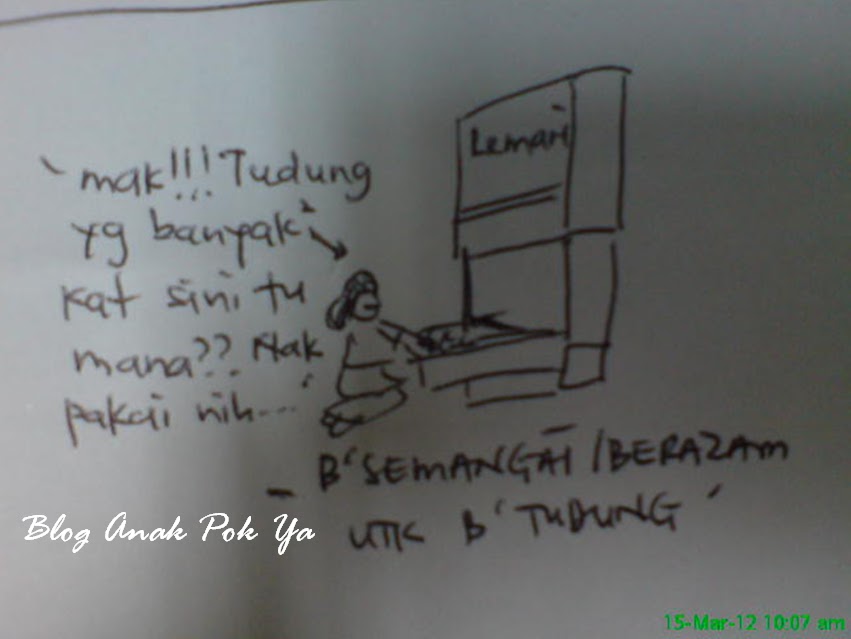 Lemari
mak!!! Tudung
yg banyak²
kat sini tu
mana?? Nak
pakai nih...
- B'SEMANGAT/BERAZAM
UTK B'TUDUNG'
Blog Anak Pok Ya
15-Mar-12 10:07 am